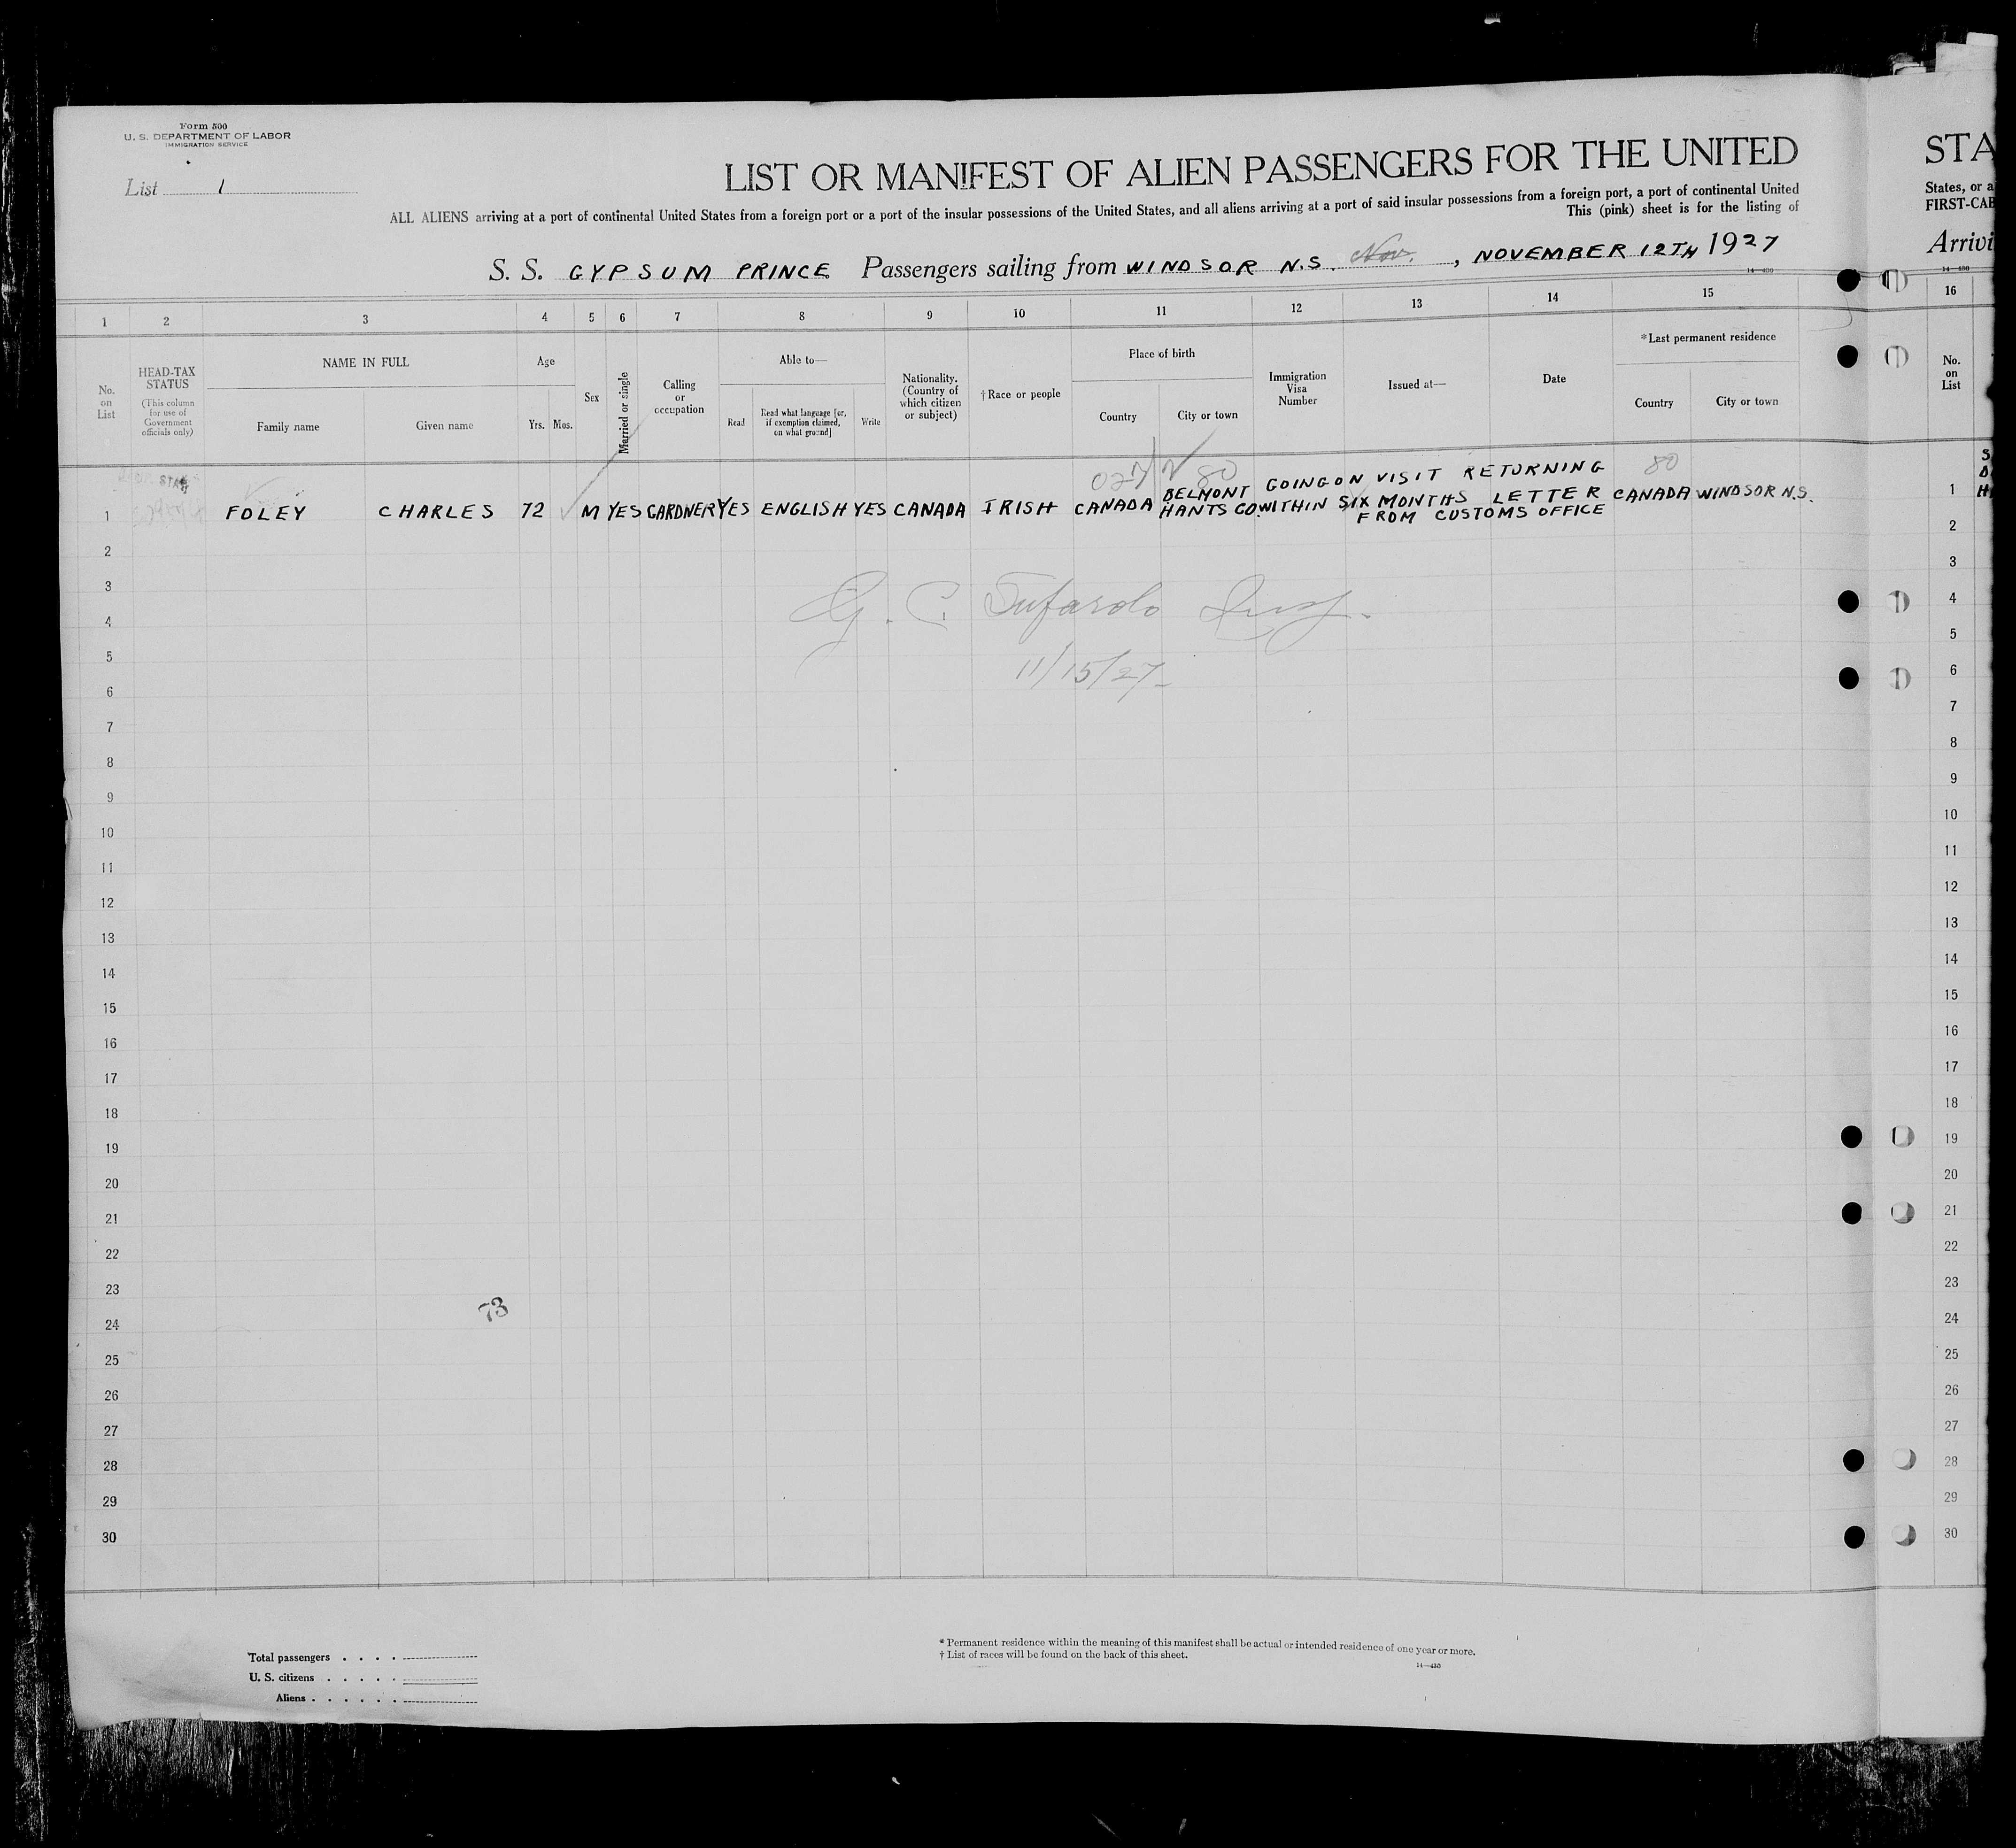 Form 500
U. S. DEPARTMENT OF LABOR
IMMIGRATION SERVICE
List 1
LIST OR MANIFEST OF ALIEN PASSENGERS FOR THE UNITED
ALL ALIENS arriving at a port of continental United States from a foreign port or a port of the insular possessions of the United States, and all aliens arriving at a port of said insular possessions from a foreign port, a port of continental United
This (pink) sheet is for the listing of
S. S. GYPSUM PRINCE Passengers sailing from WINDSOR N.S. Nov. , NOVEMBER 12TH 1927
14—430
STA
States, or a
FIRST-CAB
Arrivi
14—430
1 2 3 4 5 6 7 8 9 10 11 12 13 14 15 16
No. on List
HEAD-TAX STATUS
(This column for use of Government officials only)
NAME IN FULL
Family name
Given name
Age
Yrs. Mos.
Sex
Married or single
Calling or occupation
Able to—
Read
Read what language [or, if exemption claimed, on what ground]
Write
Nationality. (Country of which citizen or subject)
† Race or people
Place of birth
Country
City or town
Immigration Visa Number
Issued at—
Date
* Last permanent residence
Country
City or town
No. on List
027 80 80
1 FOLEY CHARLES 72 M YES GARDNER YES ENGLISH YES CANADA IRISH CANADA BELMONT HANTS CO. GOING ON VISIT RETURNING WITHIN SIX MONTHS LETTER FROM CUSTOMS OFFICE CANADA WINDSOR N.S. 1
2 2
3 3
4 4
5 5
6 6
7 7
8 8
9 9
10 10
11 11
12 12
13 13
14 14
15 15
16 16
17 17
18 18
19 19
20 20
21 21
22 22
23 23
24 24
25 25
26 26
27 27
28 28
29 29
30 30
G. C. Insp.
11/15/27
73
Total passengers
U. S. citizens
Aliens
* Permanent residence within the meaning of this manifest shall be actual or intended residence of one year or more.
† List of races will be found on the back of this sheet.
14—430